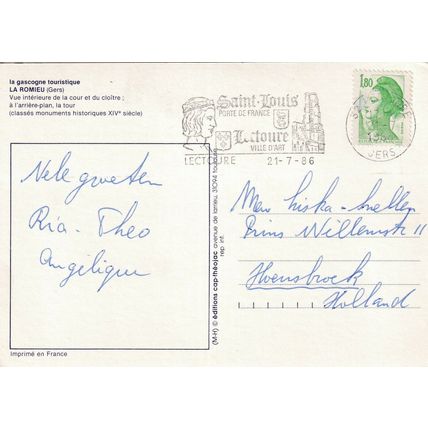 la gascogne touristique
LA ROMIEU (Gers)
Vue intérieure de la cour et du cloître ;
à l'arrière-plan, la tour
(classés monuments historiques XIVe siècle)
Saint-Louis
PORTE DE FRANCE
Lectoure
VILLE D'ART
LECTOURE 21-7-86
1,80
GERS
Vele groeten
Ria - Theo
Angélique
(M-H) © éditions cap-théojac avenue de larrieu, 31094 toulouse
rep. int.
Mew
Prins Willemstr 11
Hoensbroek
Holland
Imprimé en France